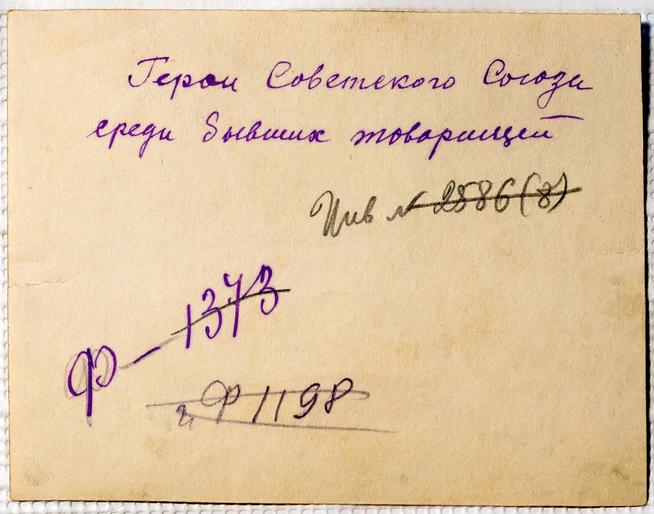 Герои Советского Союза
среди бывших товарищей
Инв № 2586(8)
Ф — 1373
Ф 1198